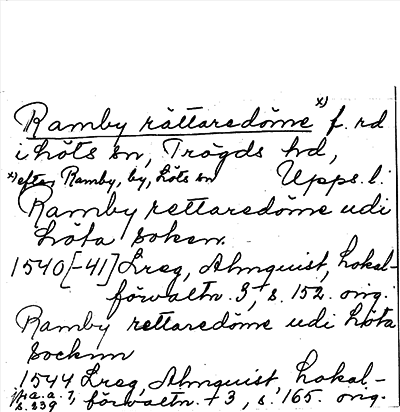 Ramby rättaredöme x) f. rd
i Löts sn, Trögds hd,
x) efter Ramby, by, Löts sn Upps. l.
Ramby rettaredöme udi
Löta soken.
1540[-41] Lreg, Almquist, Lokal-
förvaltn. 3, s. 152. orig.
Ramby rettaredöme udi Löta
socknn
1544 Lreg, Almquist, Lokal-
jfr a. a. s. 239 förvaltn. 3, s. 165. orig.